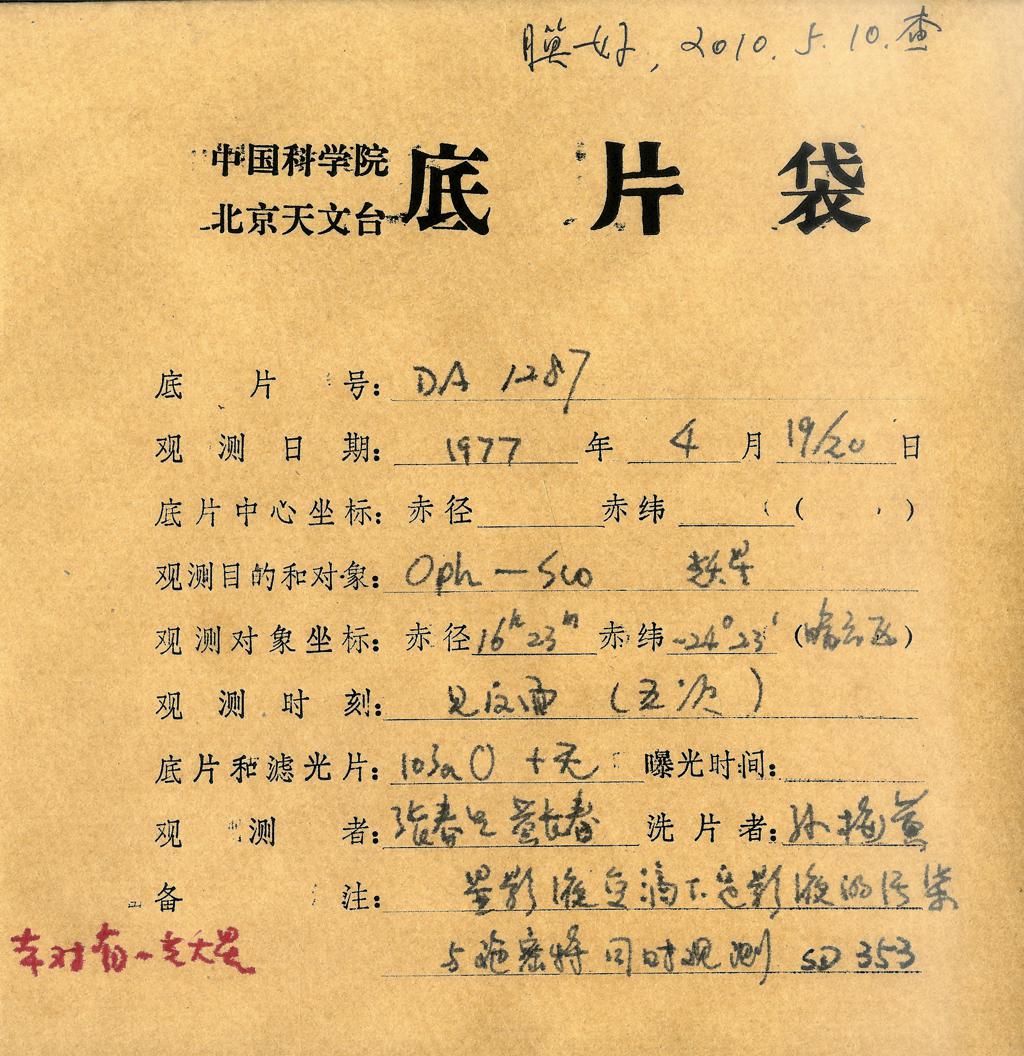 膜好, 2010.5.10.查
中国科学院
北京天文台
底片袋
底片号: DA 1287
观测日期: 1977 年 4 月 19/20 日
底片中心坐标: 赤径 赤纬 ( )
观测目的和对象: Oph — Sco 耀星
观测对象坐标: 赤径 16h 23m 赤纬 -24° 23′ (暗云区)
观测时刻: 见反面 (五次)
底片和滤光片: 103aO + 无 曝光时间:
观测者: 张春生 黄长春 洗片者: 孙梅
备注: 显影液 影液的污染
与施密特同时观测 SD 353
本对有一老大星